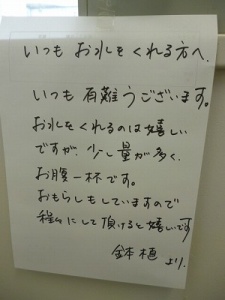 いつも お水をくれる方へ.
いつも 有難うございます。
お水をくれるのは嬉しい
ですが、少し量が多く、
お腹一杯です。
おもらしもしていますので
程々にして頂けると嬉しいです
鉢植 より.